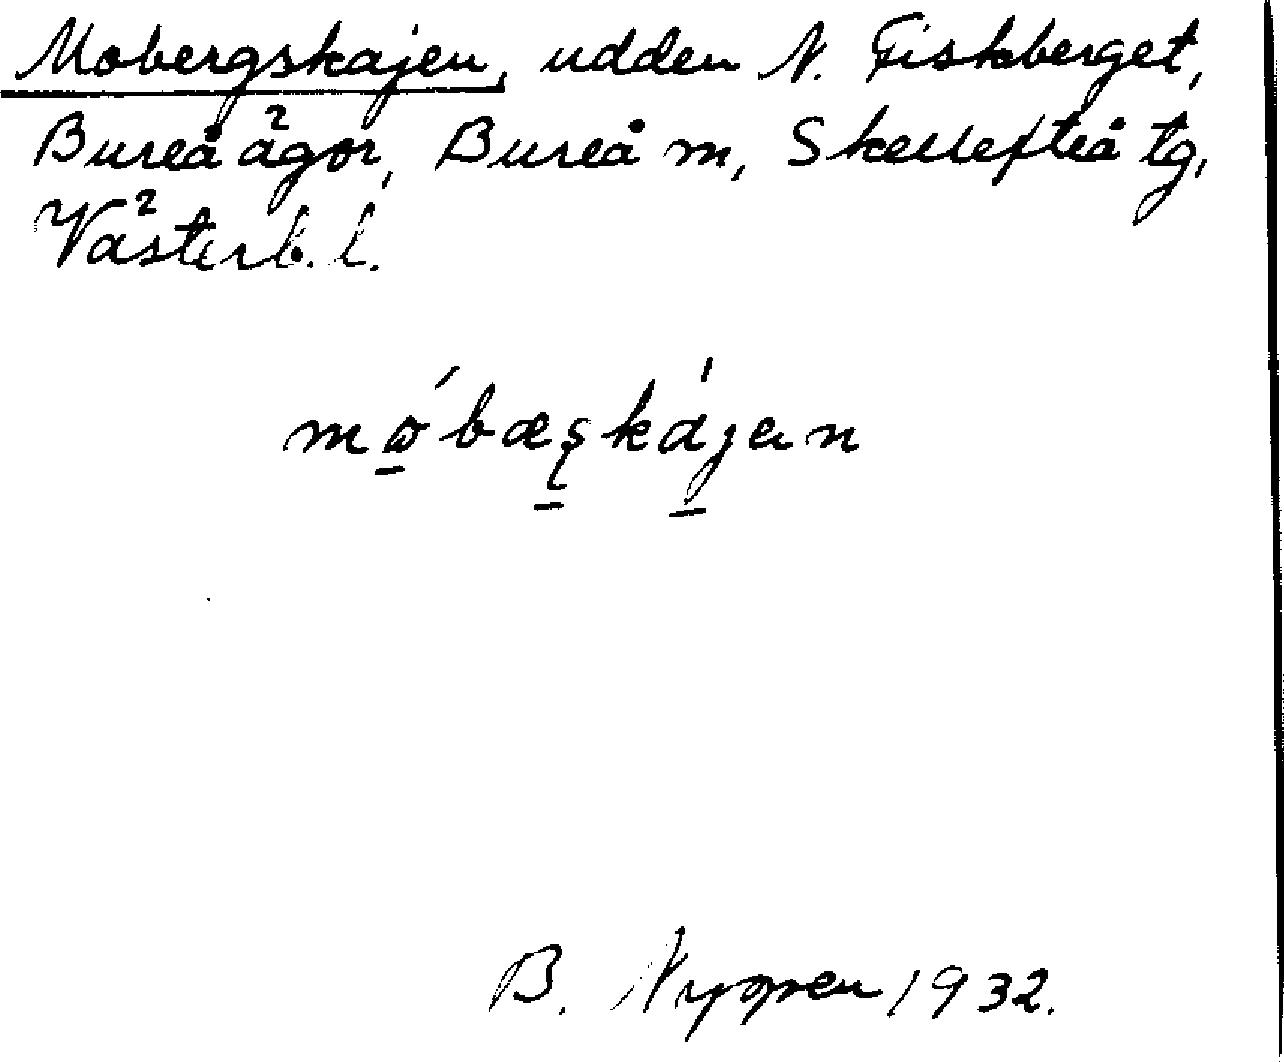 Mobergskajen, udden N. Fiskberget,
Bureå ägor, Bureå m, Skellefteå tg,
Västerb. l.
B. Nygren 1932.